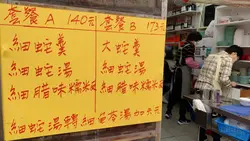 套餐A 140元
細蛇羹
細蛇湯
細腊味糯米飯
套餐B 173元
大蛇羹
細蛇湯
細腊味糯米飯
細蛇湯轉細
湯加
元